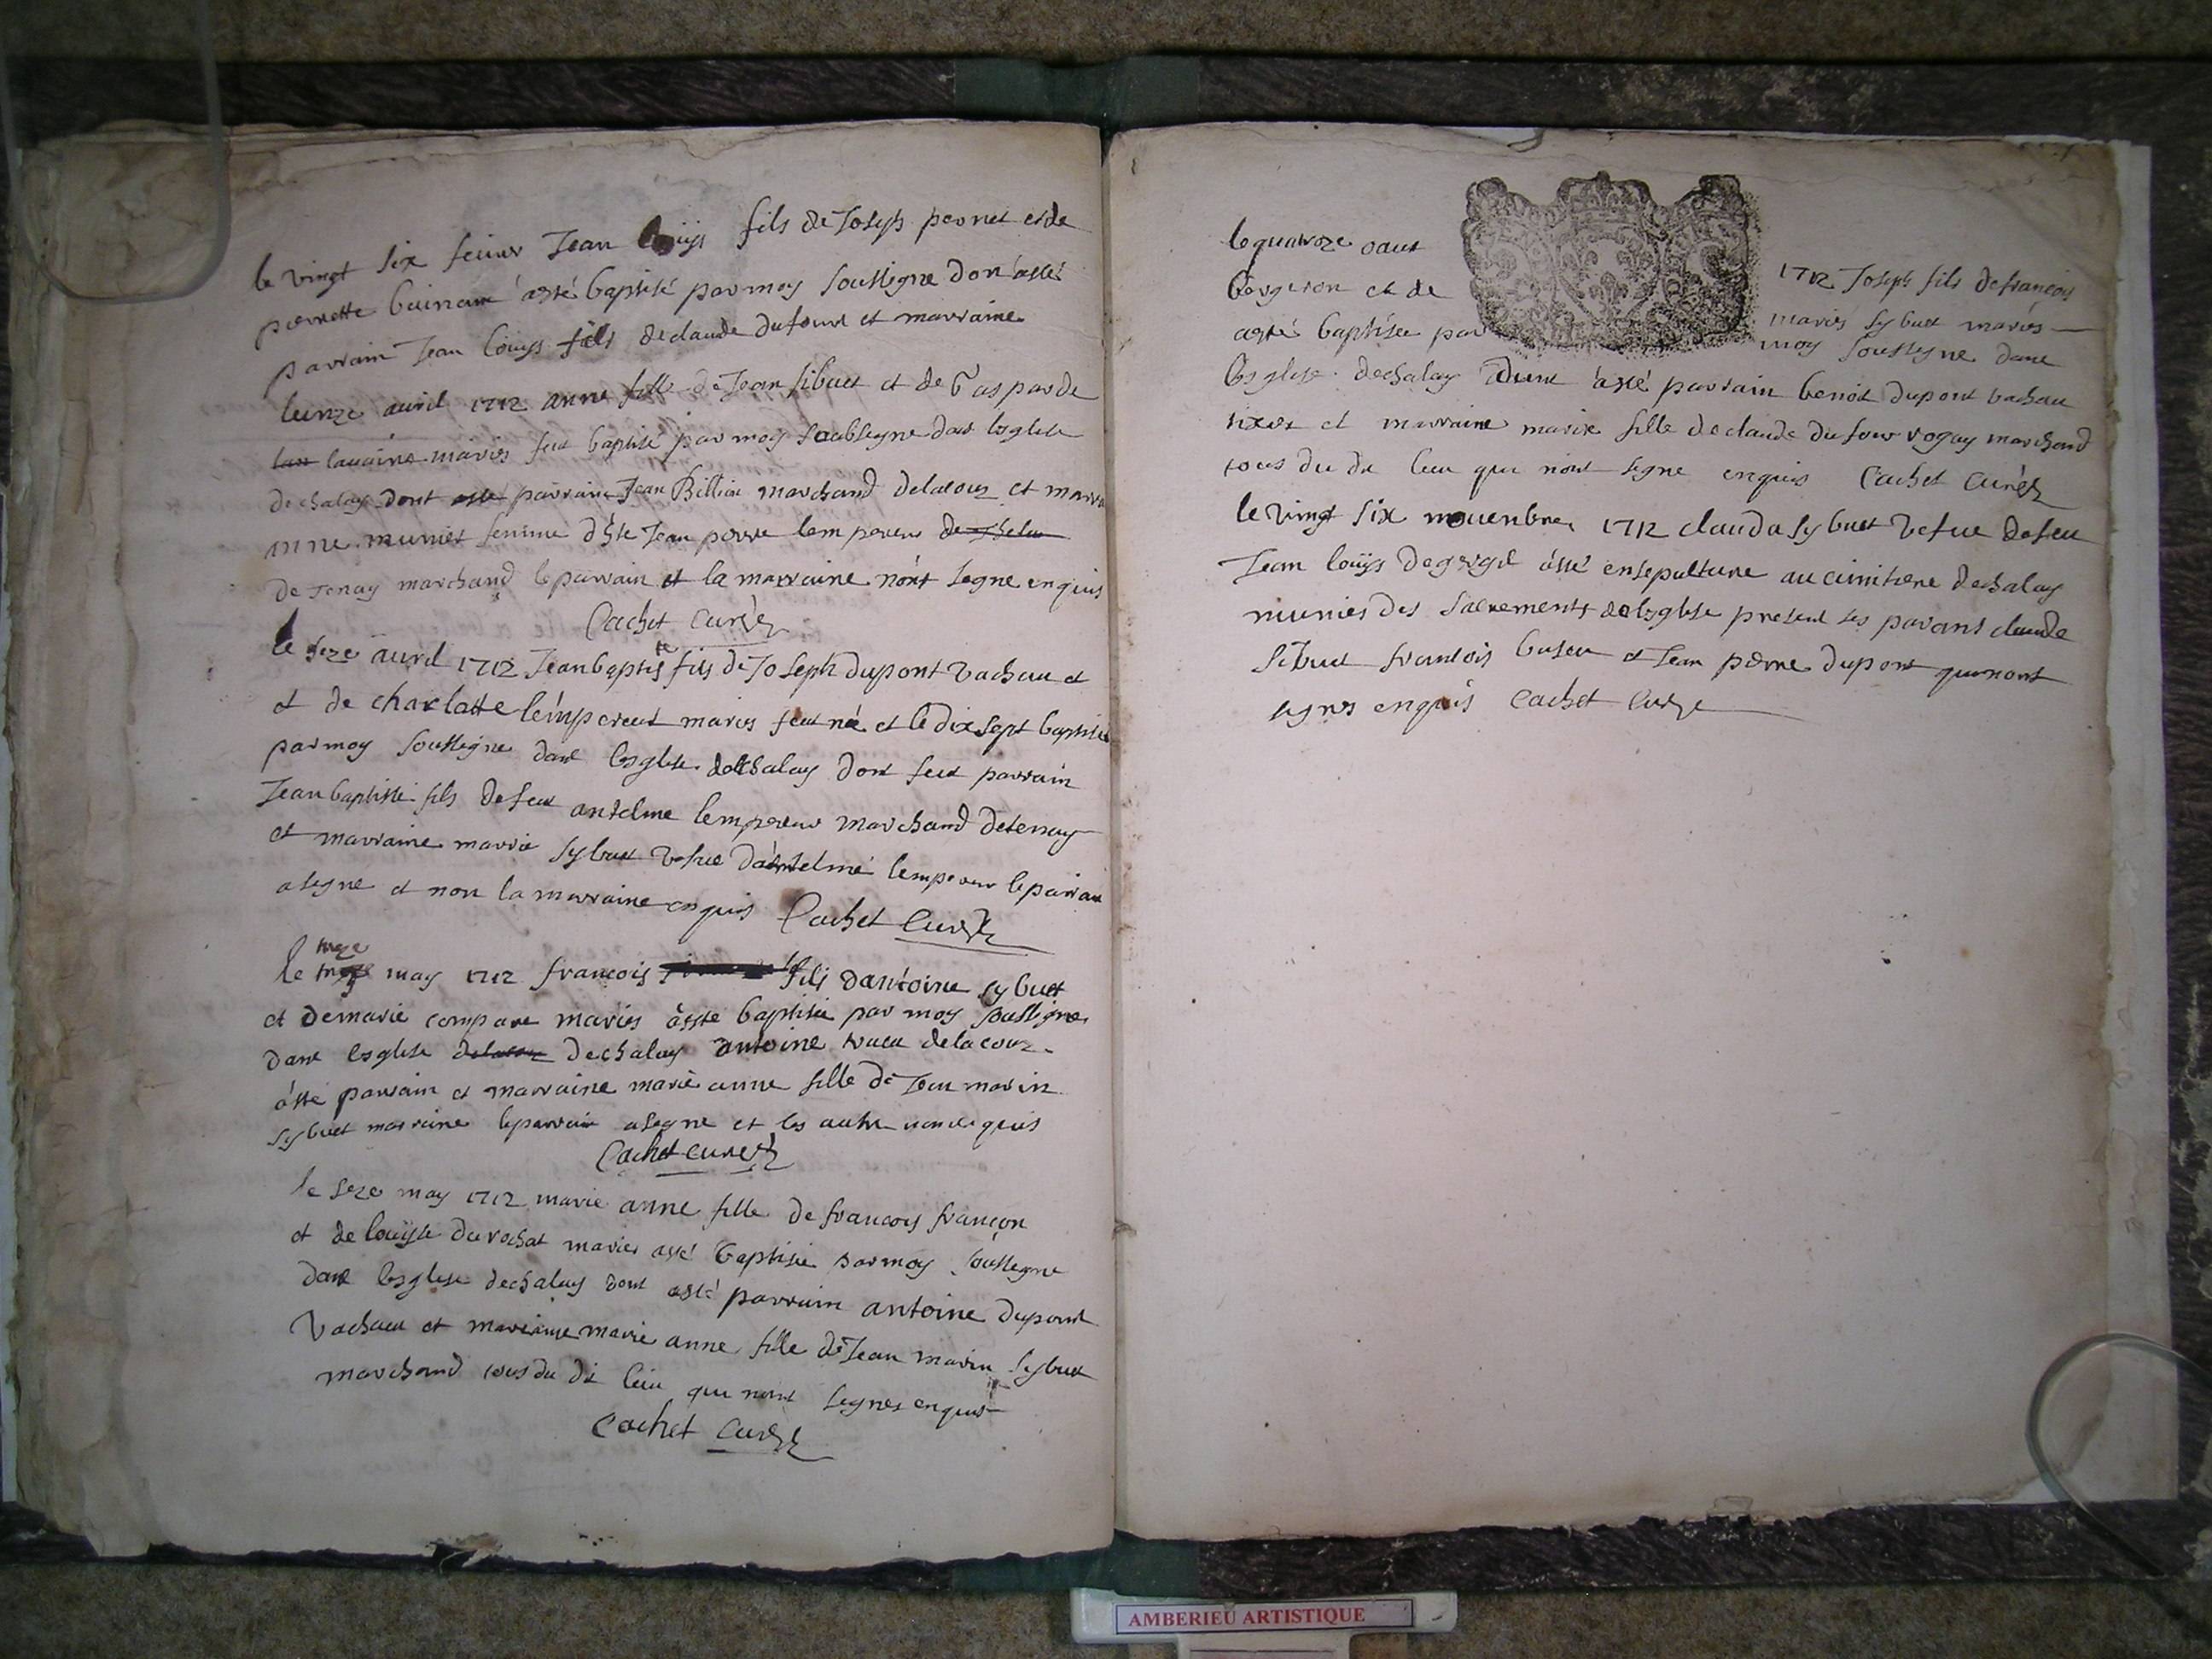 le vingt six feuier Jean louijs fils de Joseph pernet et de
pernette buinam a esté baptisé par moy soussigne dont a esté
parrain Jean louijs fils de claude dufour et marraine
lunze auril 1712 anne fille de Jean sibuet et de gasparde
lauaine mariés fut baptisé par moy soubsigne dans lesglise
de chaley dont parrain Jean Billion marchand delacour et marr
anne munier femme dhte Jean pierre lempereur
de Tenay marchand le parrain et la marraine nont segne enquis
Cachet curé
le seze auril 1712 Jean baptiste fils de Joseph dupont vachau et
et de charlotte lempereur mariés feut né et le dix sept baptisé
par moy soussigne dans lesglise de chaley dont feut parrain
Jean baptiste fils de feu antelme lempereur marchand de tenay
et marraine marrie sybuet vefue dantelme lempereur le parrain
a segne et non la marraine enquis Cachet Curé
le treze may 1712 francois fils dantoine sybuet
et de marie compare mariés a esté baptisé par moy soussigne
dans lesglise de chaley antoine de la cour
a esté parrain et marraine marie anne fille de Jean marin
sybuet marraine le parrain a segne et les autre non enquis
Cachet curé
le seze may 1712 marie anne fille de francois françon
et de louijse du rochat mariés a esté baptisée par moy soussegne
dans lesglise de chaley dont a esté parrain antoine dupont
vachau et marraine marie anne fille de Jean marin sybuet
marchand tous du dit lieu qui nont segnes enquis
Cachet Curé
le quatorze oaut 1712 Joseph fils de françois
bergeron et de mariè sybuet mariés
a esté baptisée par moy soussegne dans
lesglise de chaley dont a esté parrain benoit dupont vachau
et marraine marie fille de claude dufour rogay marchand
tous du dit lieu qui nont segne enquis Cachet Curé
le vingt six nouenbre 1712 clauda sybuet vefue de feu
Jean louijs a esté ensepulture au cimitiere de chaley
munies des sacrements de lesglise present ses parans claude
sibuet francois et Jean pierre dupont qui nont
segnes enquis Cachet Curé
AMBERIEU ARTISTIQUE